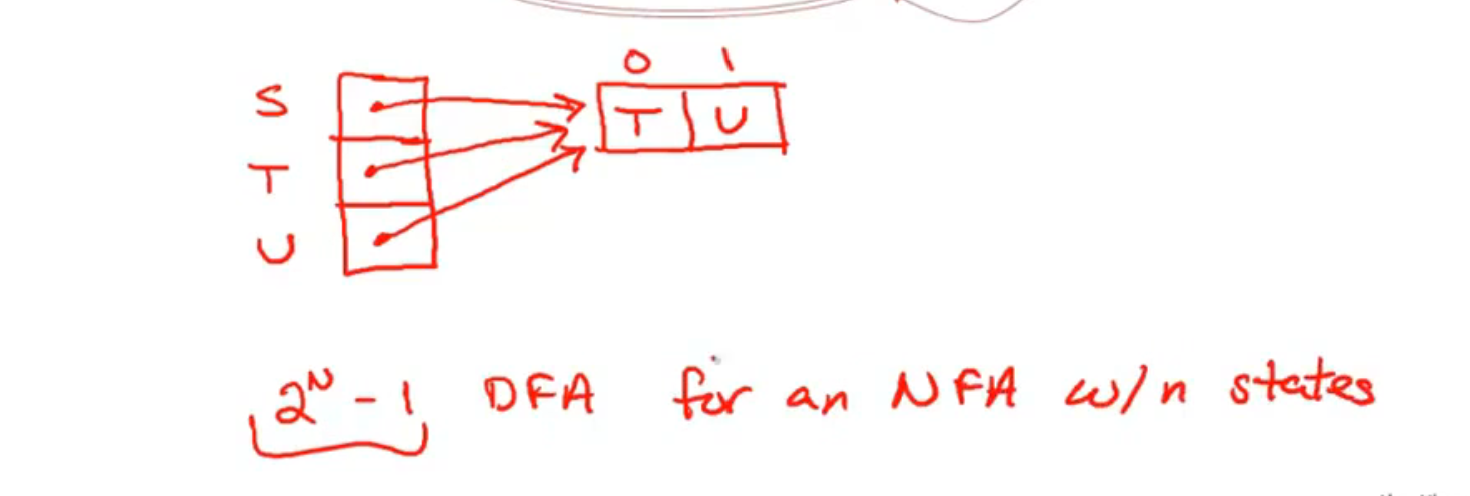 0 1
S
T U
T
U
2^N - 1 DFA for an NFA w/n states